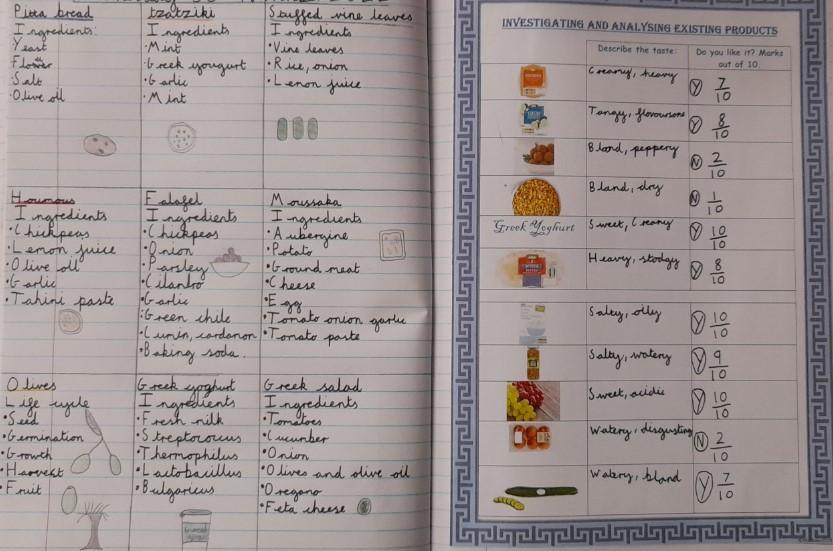 Pitta bread
Ingredients:
Yeast
Flower
Salt
Olive oil
tzatziki
Ingredients
•Mint
•Greek yougurt
•Garlic
•Mint
Stuffed vine leaves
Ingredients
•Vine leaves
•Rice, onion
•Lemon juice
Houmous
Ingredients
•Chickpeas
•Lemon juice
•Olive oil
•Garlic
•Tahini paste
Falafel
Ingredients
•Chickpeas
•Onion
•Parsley
•Cilantro
•Garlic
•Green chile
•Cumin, cardamon
•Baking soda.
Moussaka
Ingredients
•Aubergine
•Potato
•Ground meat
•Cheese
•Egg
•Tomato onion garlic
•Tomato paste
Olives
Life cycle
•Seed
•Germination
•Growth
•Harvest
•Fruit
Greek yoghurt
Ingredients
•Fresh milk
•Streptococcus
•Thermophilus
•Lactobacillus
•Bulgaricus
Greek salad
Ingredients
•Tomatoes
•Cucumber
•Onion
•Olives and olive oil
•Oregano
•Feta cheese
INVESTIGATING AND ANALYSING EXISTING PRODUCTS
Describe the taste:
Do you like it? Marks
out of 10.
Creamy, heavy
Y 7/10
Tangy, flavoursome
Y 8/10
Bland, peppery
N 2/10
Bland, dry
N 1/10
Greek Yoghurt
Sweet, Creamy
Y 10/10
Heavy, stodgy
Y 8/10
Salty, oily
Y 10/10
Salty, watery
Y 9/10
Sweet, acidic
Y 10/10
Watery, disgusting
N 2/10
Watery, bland
Y 7/10